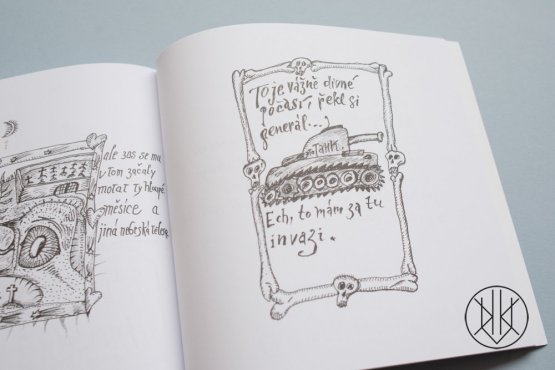 ale zas se mu
v tom začaly
motat ty hloupé
měsíce a
jiná nebeská tělesa
To je vážně divné
počasí, řekl si
generál...
ТАНК
Ech, to mám za tu
invazi.